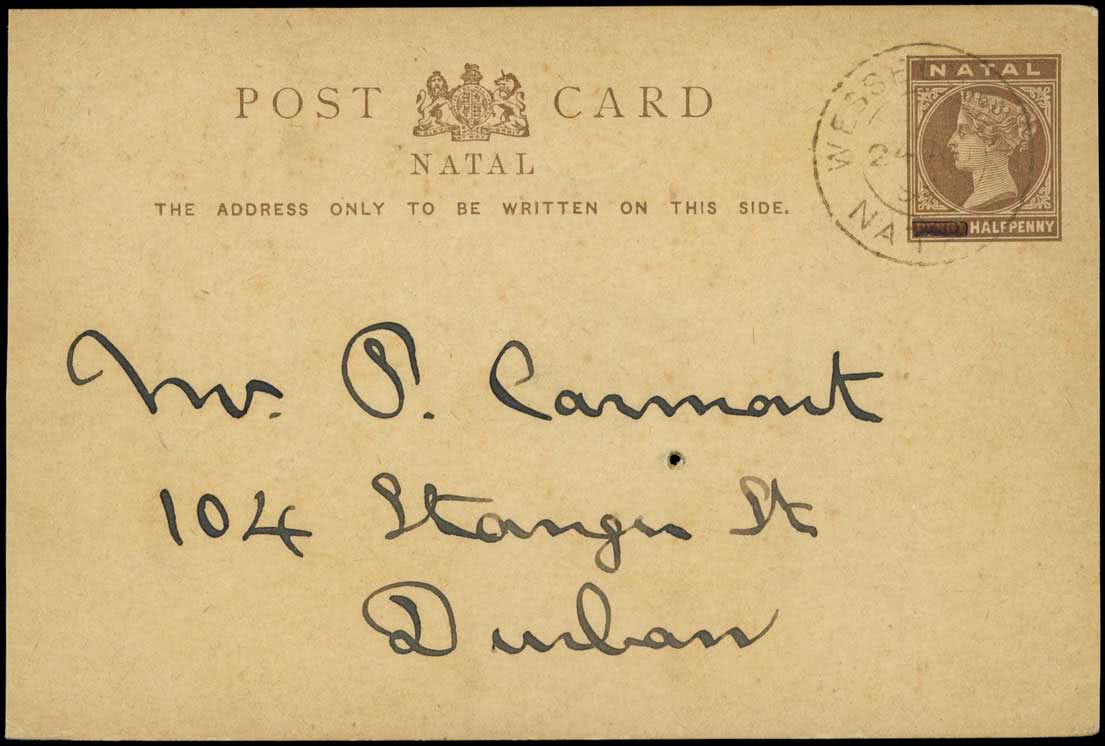 POST CARD
NATAL
THE ADDRESS ONLY TO BE WRITTEN ON THIS SIDE.
NATAL
HALFPENNY
NAT
Mr. P. Carmont
104 Stanger St
Durban